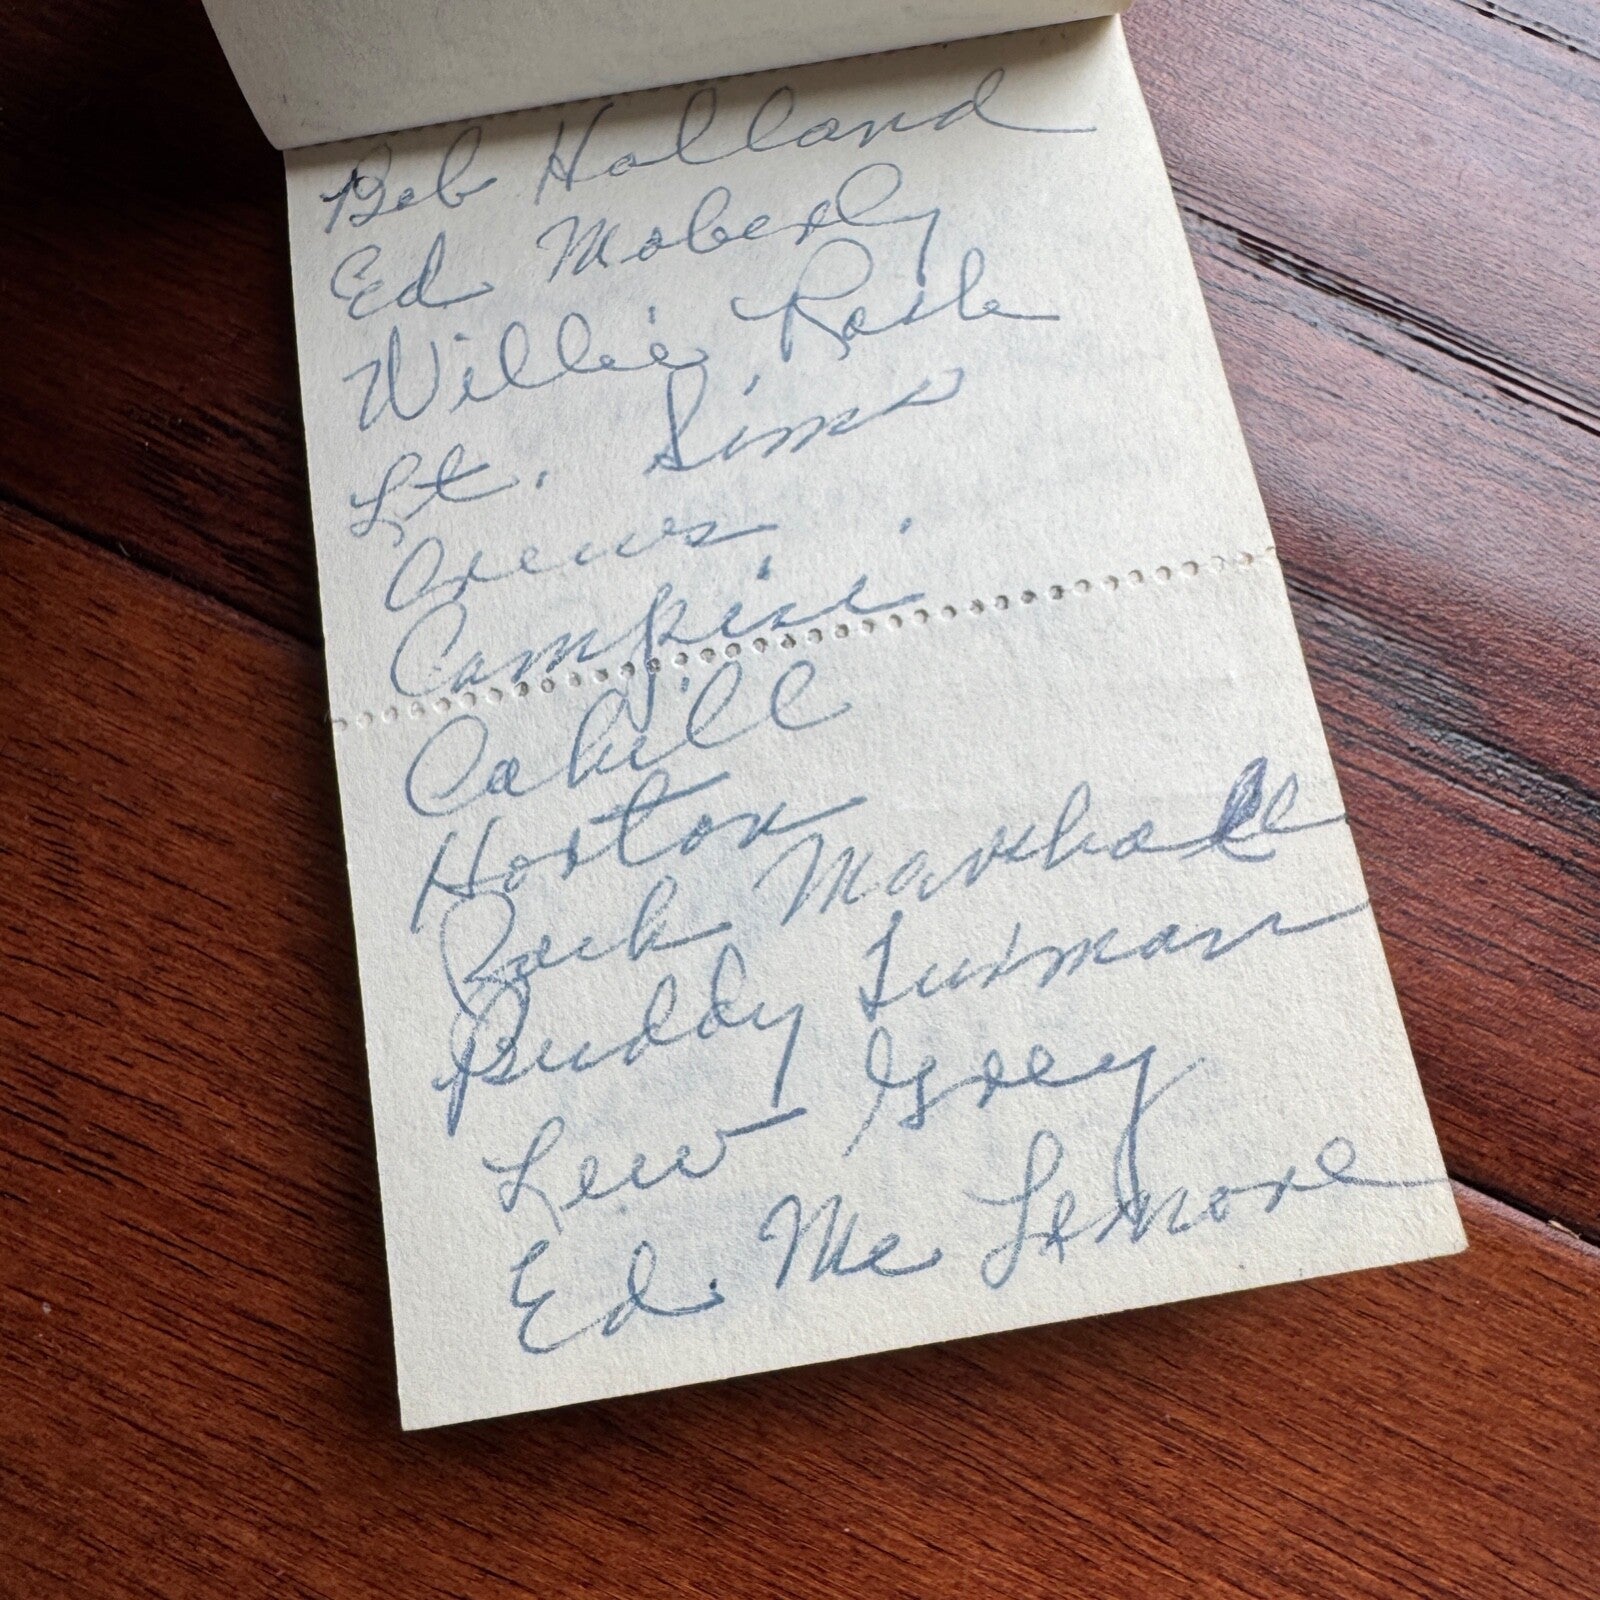 Bob Holland
Ed Moberly
Willie
Lt. Sims
Crews
Campisi
Cahill
Horton
Buck Marshall
Buddy Turman
Lew Grey
Ed. Mc Lemore